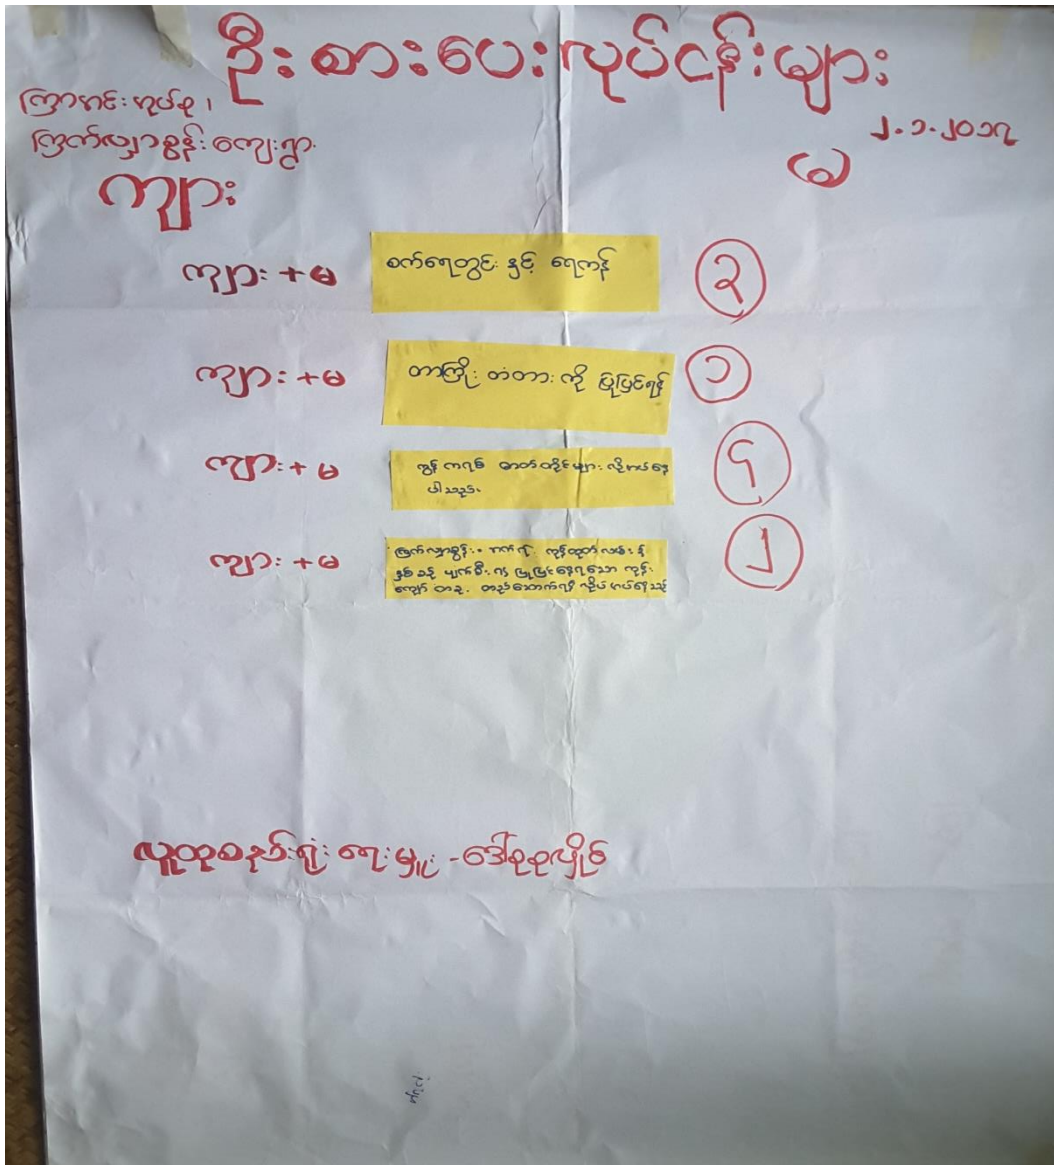 ဦးစားပေးလုပ်ငန်းများ
ကြာဟင်းအုပ်စု၊
ကြက်လျှာစွန်းကျေးရွာ
၂.၁.၂၀၁၇
ကျား
မ
ကျား + မ စက်ရေတွင်း နှင့် ရေကန်
၃
ကျား + မ တာကြိုး တံတား ကို ပြုပြင်ရန်
၁
ကျား + မ ကွန်ကရစ် ဓာတ်တိုင်များ လိုအပ်နေ
ပါသည်။
၄
ကျား + မ ကြက်လျှာစွန်း - ကုန်ထုတ်လမ်း
နှစ်စဉ် ပျက်စီး၍ ပြုပြင်နေရသော ကုန်း
ကျော် တံခု. တည်ဆောက်ရန် လိုအပ်နေသည်
၂
လူထုစည်းရုံးရေးမှူး - ဒေါ်စုစုလှိုင်